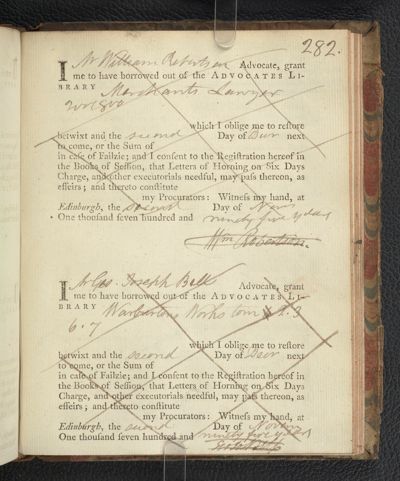 282.
I Mr William Robertson Advocate, grant
me to have borrowed out of the ADVOCATES LI-
BRARY Merchants Lawyer
2 vols 8vo
which I oblige me to reſtore
betwixt and the second Day of Decr next
to come, or the Sum of
in caſe of Failzie; and I conſent to the Regiſtration hereof in
the Books of Seſſion, that Letters of Horning on Six Days
Charge, and other executorials needful, may paſs thereon, as
effeirs; and thereto conſtitute
my Procurators: Witneſs my hand, at
Edinburgh, the second Day of
One thouſand ſeven hundred and ninety five years
Wm Robertson.
I Mr Geo. Joseph Bell Advocate, grant
me to have borrowed out of the ADVOCATES LI-
BRARY Warburtons Works tom 2. 3
6. 7
which I oblige me to reſtore
betwixt and the second Day of Decr next
to come, or the Sum of
in caſe of Failzie; and I conſent to the Regiſtration hereof in
the Books of Seſſion, that Letters of Horning on Six Days
Charge, and other executorials needful, may paſs thereon, as
effeirs; and thereto conſtitute
my Procurators: Witneſs my hand, at
Edinburgh, the second Day of Novr
One thouſand ſeven hundred and ninety five years